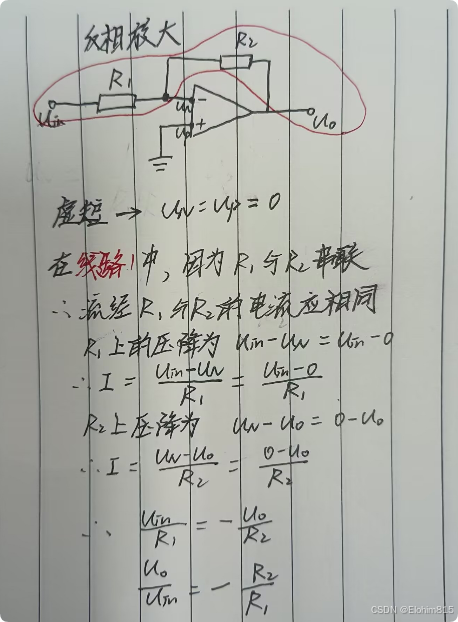 反相放大
R2
R1
Uin
UN -
UP +
Uo
虚短 → UN = UP = 0
在线路1中，因为R1与R2串联
∴流经R1与R2的电流应相同
R1上的压降为 Uin-UN = Uin-0
∴ I = (Uin-UN)/R1 = (Uin-0)/R1
R2上压降为 UN-Uo = 0-Uo
∴ I = (UN-Uo)/R2 = (0-Uo)/R2
∴ Uin/R1 = - Uo/R2
Uo/Uin = - R2/R1
CSDN @Elohim815